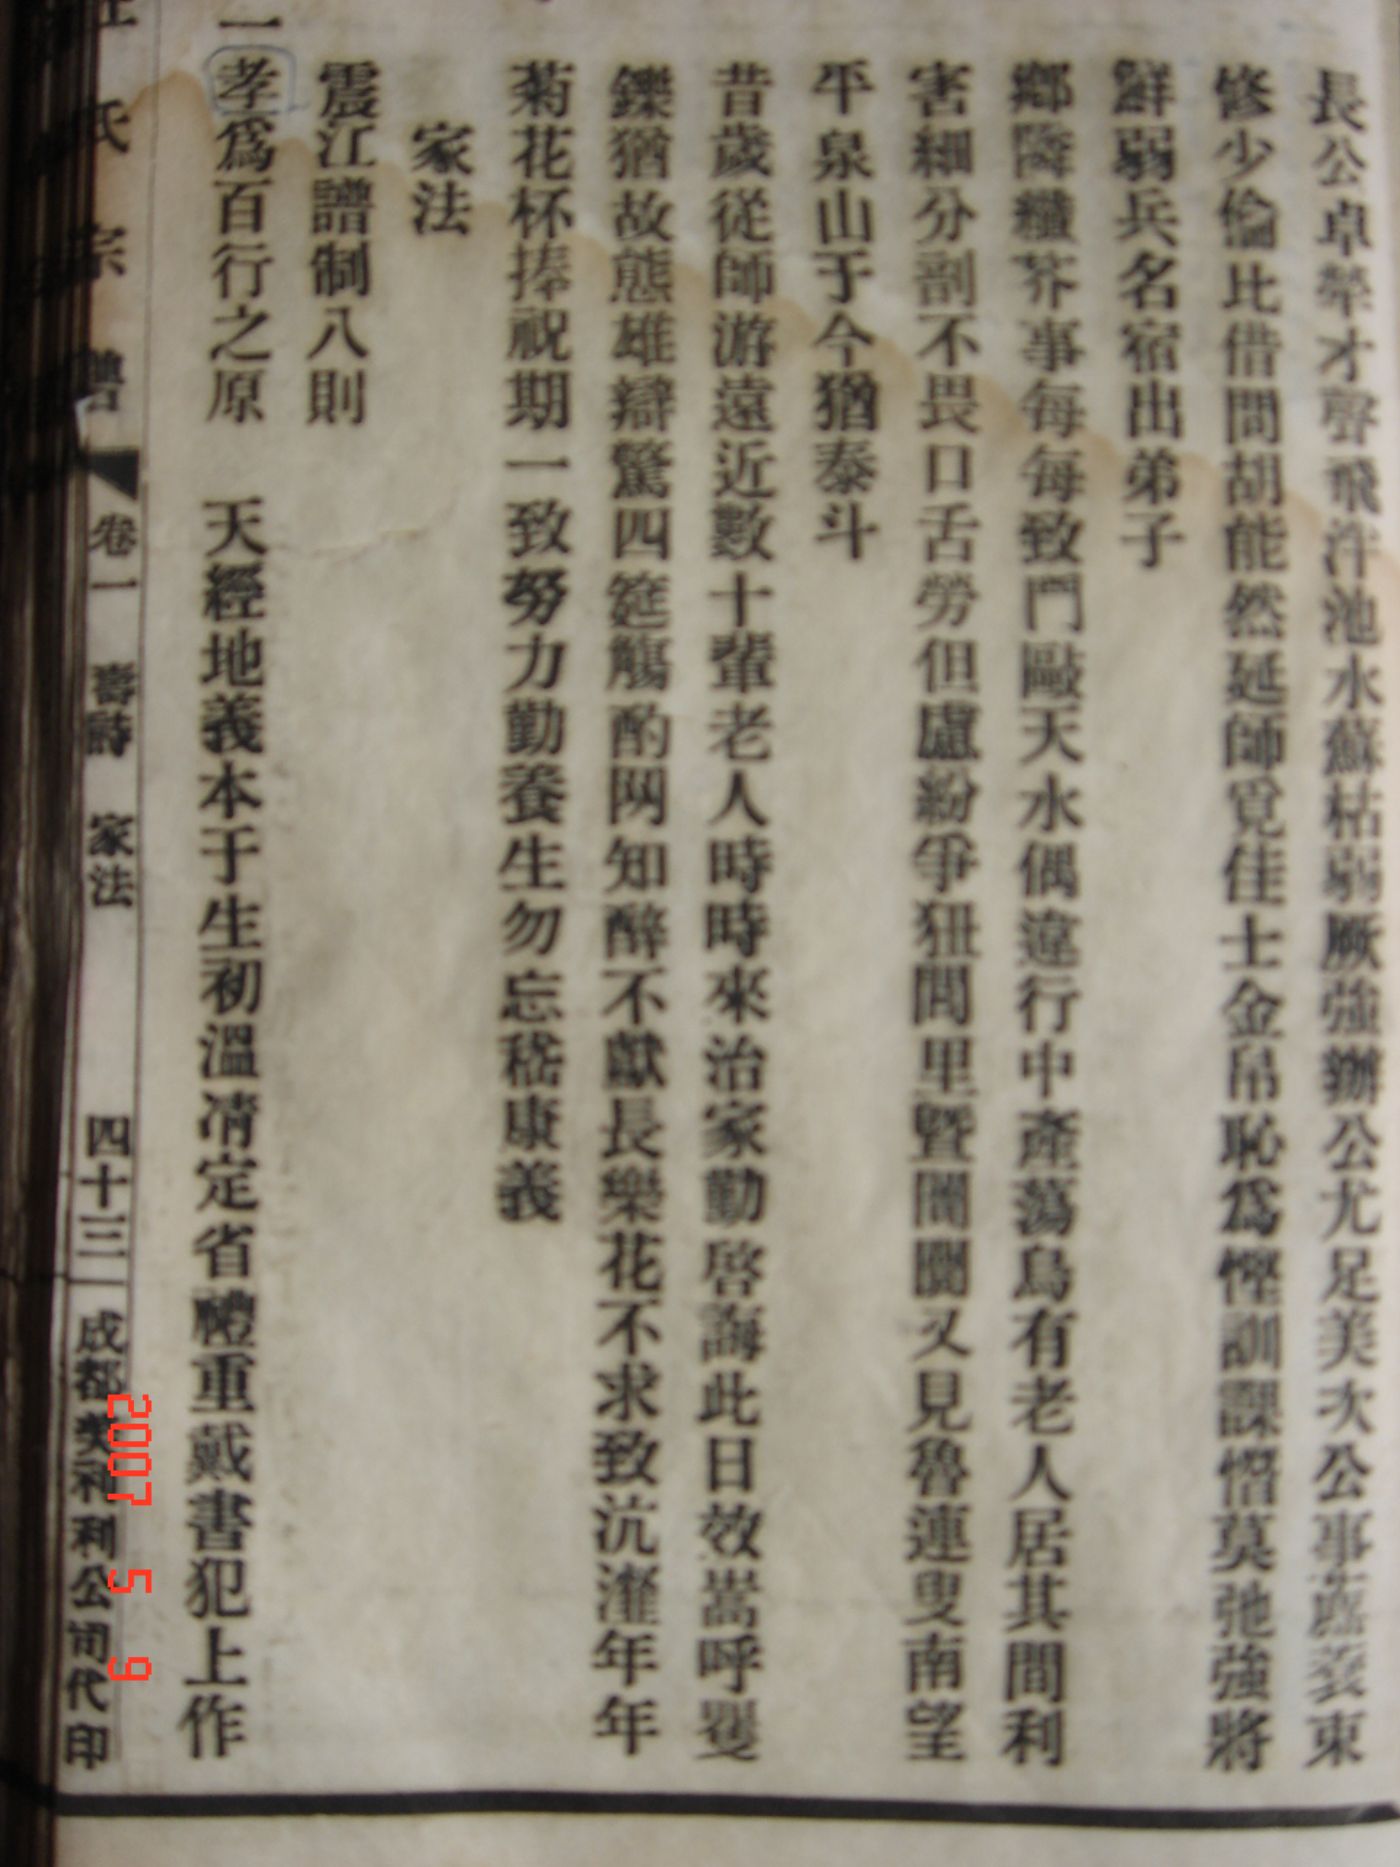 長公卓犖才聲飛泮池水蘇枯弱厥強辦公尤足美次公事蠶裘東
修少倫比借問胡能然延師覓佳士金帛恥爲慳訓課慴莫弛強將
鮮弱兵名宿出弟子
鄉隣纖芥事每每致鬥毆天水偶違行中產蕩烏有老人居其間利
害細分剖不畏口舌勞但慮紛爭狃閭里暨閭閻又見魯連叟南望
平泉山于今猶泰斗
昔歲從師游遠近數十輩老人時時來治家勤啓誨此日效嵩呼矍
鑠猶故態雄辯驚四筵觴酌罔知醉不獻長樂花不求致沆瀣年年
菊花杯捧祝期一致努力勤養生勿忘嵇康義
家法
震江譜制八則
一孝爲百行之原 天經地義本于生初溫凊定省禮重戴書犯上作
氏宗譜 卷一 壽詩 家法 四十三 成都美和利公司代印
2007 5 9